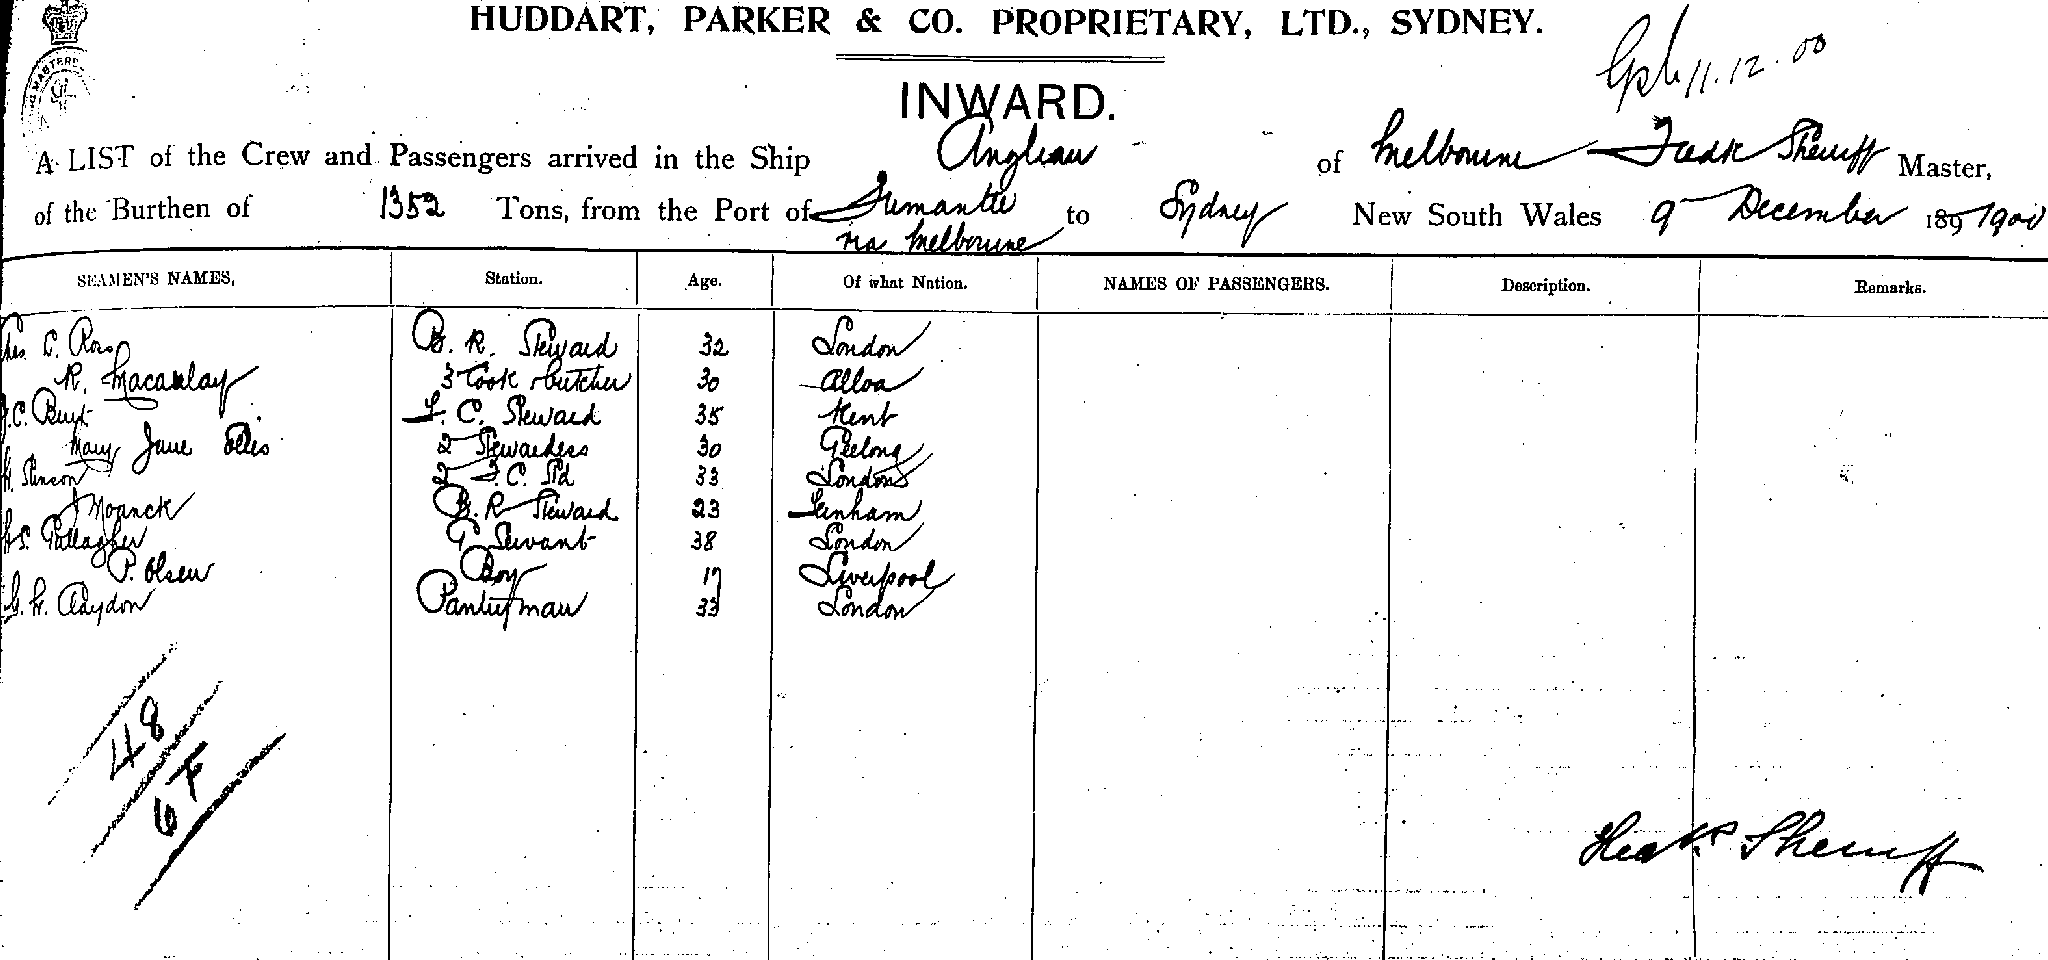 HUDDART, PARKER & CO. PROPRIETARY, LTD., SYDNEY.
11.12.00
INWARD.
A LIST of the Crew and Passengers arrived in the Ship Anglian of Melbourne Fredk Sherriff Master,
of the Burthen of 1352 Tons, from the Port of Fremantle to Sydney New South Wales 9 December 189 1900
via Melbourne
SEAMEN'S NAMES, Station. Age. Of what Nation. NAMES OF PASSENGERS. Description. Remarks.
C. Ross B. R. Steward 32 London
R. Macaulay 3 Cook & butcher 30 Alloa
C. Burt F. C. Steward 35 Kent
Mary Jane Ellis 2 Stewardess 30 Geelong
H. Stenson 2 F. C. Std 33 London
J Moanck B. R Steward 23 Lenham
S. Gallagher G Servant 38 London
P. Olsen Boy 17 Liverpool
G. H. Claydon Pantryman 33 London
48
6 F
Fredk Sherriff